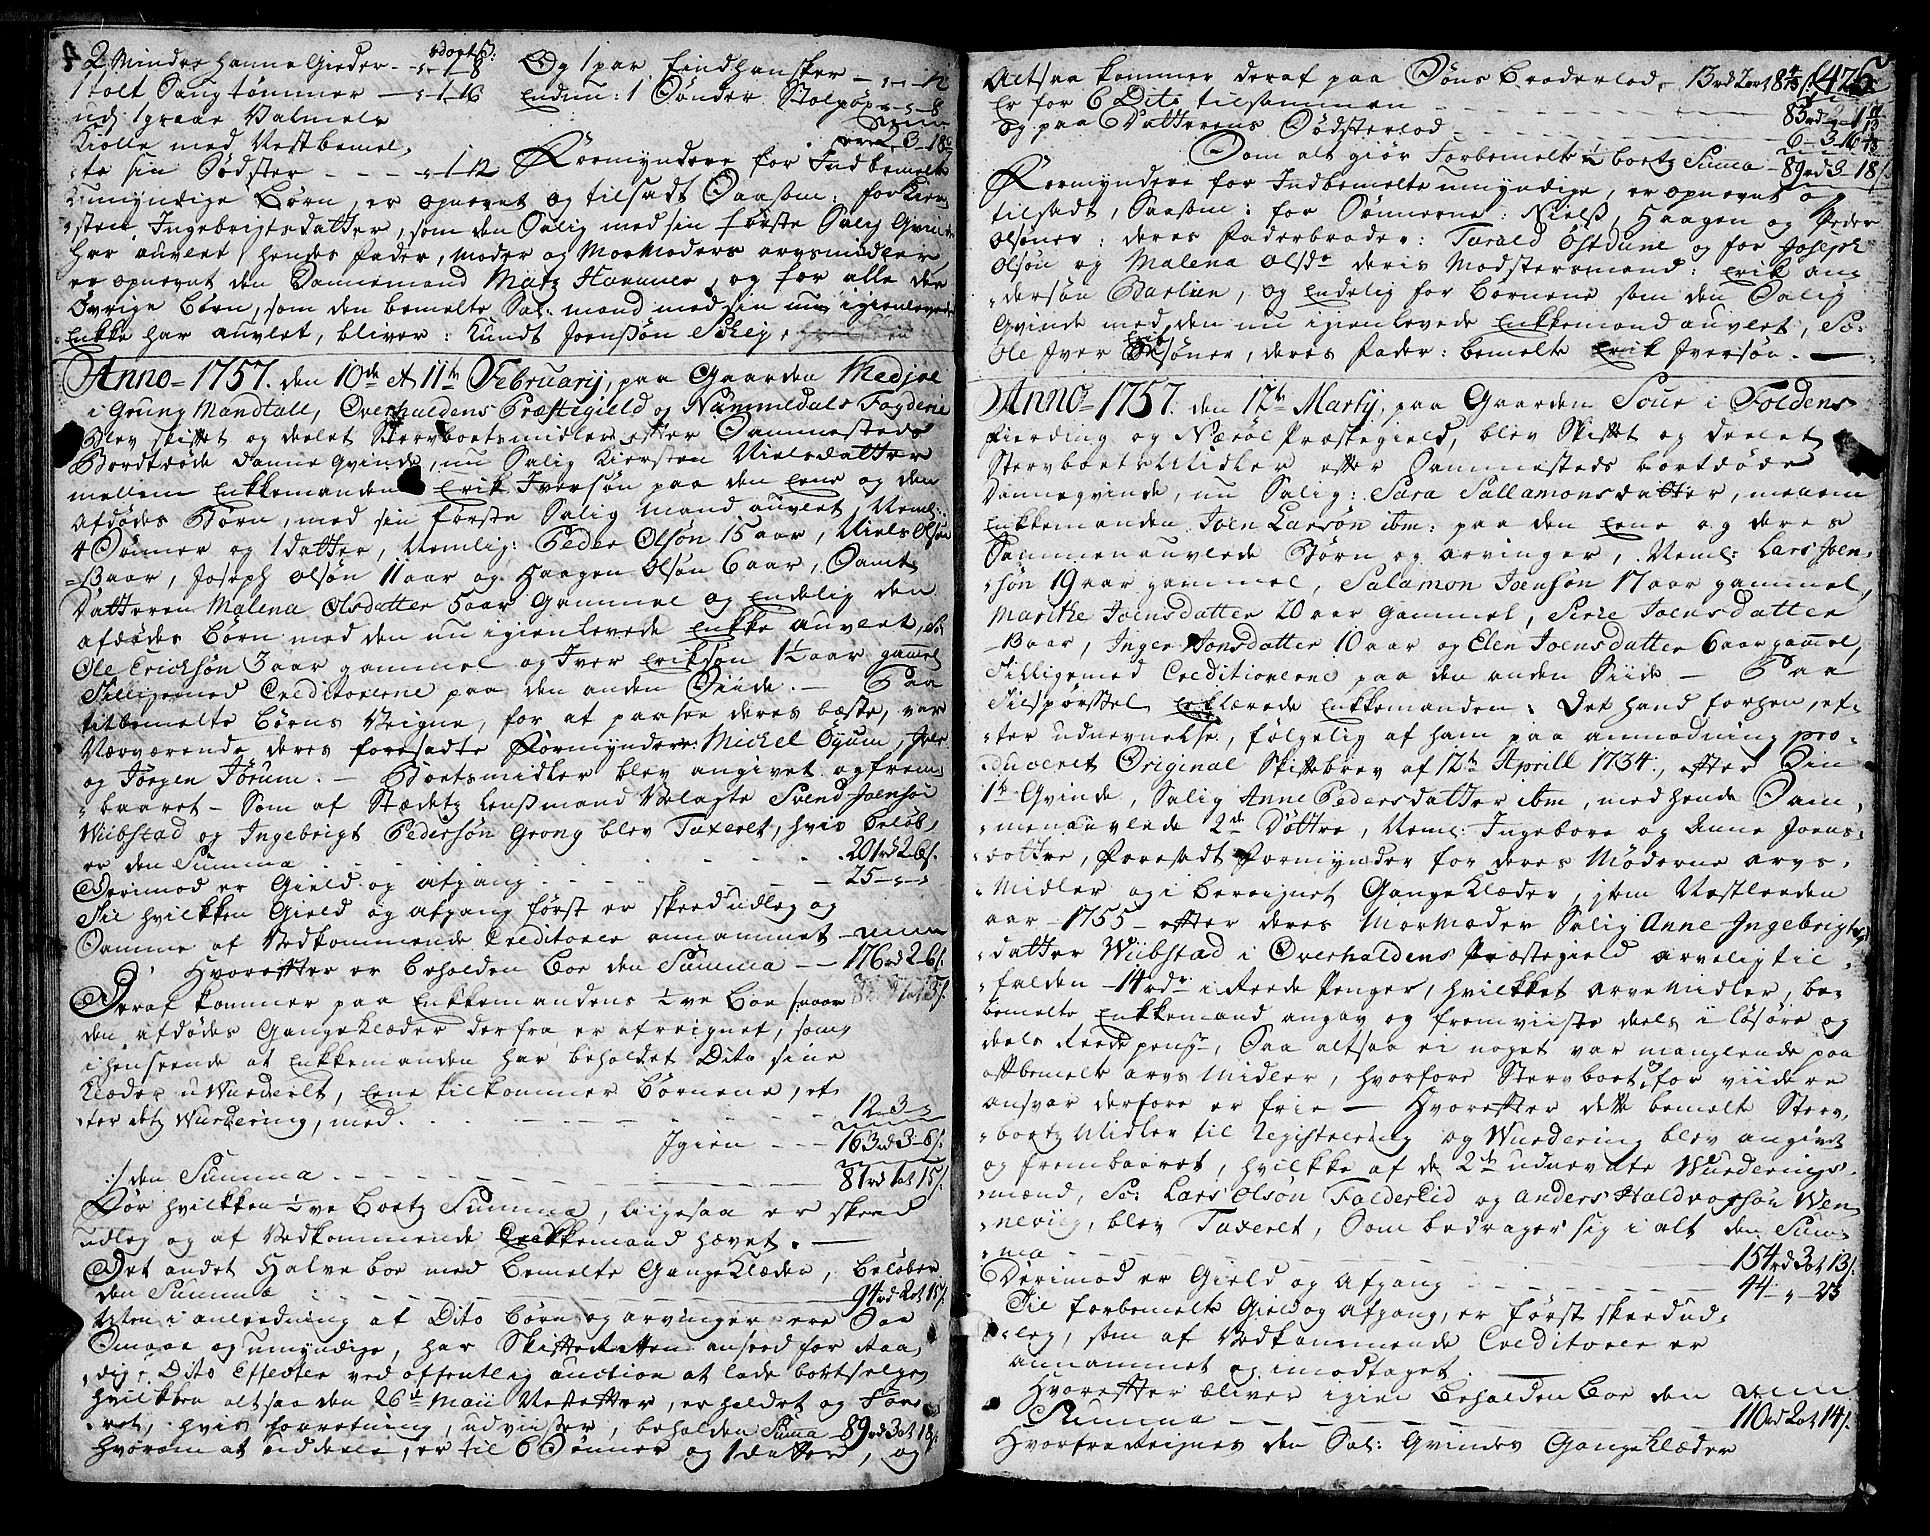 2 Mindre hanne Gieder - " - 1 - 8
1 tolt Sang tømmer - " - 1 - 16
ud: 1 graae Valmels
Kiolle med Vestbemel,
te sin Sødster - - - " - 1 - 12
Og 1 par Eindhansker - " - " - 12
Endnu: 1 Sønder Stolpøp - " - " - 8
3 - 18
Formyndere for Indbemelte
umyndige Børn, er opnevnt og tilsadt Saasom: for Kier
sten Ingebrigtsdatter, som den Salig med sin første Salig Gvinde
har auvlet, hendes Fader, Moder og MorModers arvsmidler
er opnevnt den Dannemand Matz Hammer, og for alle de
Øvrige Børn, som den bemelte Sal: mand med sin nu igienlevende
Enkke har auvlet, bliver: Knudt Joensøn Schej,
Anno - 1757. den 10de et 11te Februarij, paa Gaarden Medjae
i Grung Mandtall, Overhaldens Præstegield og Nummedals Fogderie
Blev skiftet og deelet Stervboetsmidler efter Sammesteds
Bordtdøde danne Gvinde, nu Salig Kiersten Nielsdatter
mellem Enkkemanden Erik Iversøn paa den Eene og den
afdødes Børn, med sin første Salig Mand auvlet, Neml:
4 Sønner og 1 datter, Nemlig: Peder Olsøn 15 aar, Niels Olsøn
13 aar, Joseph Olsøn 11 aar og Haagen Olsøn 6 aar, Samt
Datteren Malena Olsdatter 5 aar Gammel og Endelig den
afdødes Børn med den nu igienlevede Enkke auvlet, So:
Ole Erichsøn 3 aar gammel og Iver Eriksøn 1½ aar gamel
Tilligemed Creditorerne paa den anden Siide. - Paa
titbemelte Børns Veigne, for at paasee deres bæste, var
Nærværende deres foresadte Formyndere: Michel Øyum,
og Jørgen Jørum. - Boetsmidler blev angivet og frem
baaret - Som af Stædetz Lensmand Velagte Svend Joensøn
Wiibstad og Ingebrigt Pedersøn Grong blev Taxeret, hvis beløb,
er den Summa - - - 201rd 2 ort 6s.
Derimod er Gield og afgang - - - 25 - " - "
Til hvilkken Gield og afgang først er skeed udlæg og
Samme af Vedkommende Creditorer annammet
Hvorefter er beholden Boe den Summa - - 176rd 2 - 6s.
Deraf kommer paa Enkkemandens ½ve Boe
den afdødes Gangeklæder derfra er afreignet, som
i henseende at Enkkemanden har beholdet Dito sine
Klæder uWurderlt, Eene tilkommer Børnene, ef
ter detz Wurdering, med - - - 12 - 3 - "
Igien - - 163rd 3 - 6s.
den Summa - - - 81rd 3 ort 15s.
Før hvilkken ½ve Boetz Summa, ligesaa er skeed
udlæg og af Vedkommende Enkkemand hævet. -
Det andet Halve boe med bemelte Gangeklæder, beløber
den Summa - - - 94rd 2 ort 15s.
Men i anledning af Dito Børn og arvinger ere Saa
Smaae og umyndige, har Skifte Retten anseed for Raa,
dig: Dito Effecter ved offentlig auction at lade bortselge
hvilkken altsaa den 26de Maii Næstefter, er holdet og For
ret, hvis forretning, udviiser, beholden Suma - 89rd 3 ort 18s.
Hvorom at siddele, er til 6 Sønner og 1 datter, og
Altsaa kommer deraf paa Søns Broderlod - 13rd 2 ort 8 s. 426
Er for 6 Dito tilsammen - - - 83rd 2 - 1
og paa Datterens Sødsterlod - - - 6 - 3 - 16
Som alt giør Forbemelte ½ boetz Suma - 89rd 3 - 18s.
Formyndere for Indbemelte umyndige, er opnevnt og
tilsadt, Saasom: for Sønnerne: Nielss, Haagen og Peder
Olsøner: deres Faderbroder: Tarald Østdune og for Joseph
Olsøn og Malena Olsdr deris Modstersmand: Erik An
dersøn Barlien, og Endelig for Børnene som den Salig
Gvinde med den nu igienlevede Enkkemand auvlet, So:
Ole Iver Eriksøner, deres Fader: bemelte Erik Iversøn. -
Anno - 1757. den 12te Martij, paa Gaarden Soue i Foldens
Fierding og Nærøe Præstegield, blev Skiftet og deelet
Stervboets Midler efter Sammesteds bortdøde
Dannegvinde, nu Salig: Sara Sallamonsdatter, mellem
Enkkemanden Joen Larsøn ibm: paa den Eene og deres
Sammenauvlede Børn og arvinger, Neml: Lars Joen
søn 19 aar gammel, Salamon Joensøn 17 aar gammel,
Marike Joensdatter 20 aar Gammel, Sirie Joensdatter
13 aar, Inger Jonsdatter 10 aar og Elen Joensdatter 6 aar gamel,
Tilligemed Creditorerne paa den anden Siide - Paa
Tilspørssel Erklærede Enkkemanden: Det hand forhen, ef
ter udnevnelse, følgelig af ham paa anmodning pro,
duceret Original Skiftebrev af 12te Aprill 1734, efter Sin
1te Gvinde, Salig Anne Pedersdatter ibm, med hende Sam,
menauvlede 2de Døttre, Neml: Ingebore og Anne Joens
døttre, foresadt Formynder for deres Møderne arvs
Midler og i bereignet Gangeklæder, item Næstleeden
aar - 1755 - efter deres MorModer Salig Anne Ingebrigts
datter Wiibstad i Overhaldens Præstegield arveligtil
falden - 14rdr i Reede Penger, hvilkket arve Midler, be
bemelte Enkkemand angav og fremviiste deels i løsøre og
deels Reede penge, Saa altsaa ei noget var manglende paa
oftbemelte arvs Midler, hvorfore Stervboet for viidere
ansvar derfore er frie - Hvorefter dette bemelte Sterv,
boetz Midler til Registrering og Wurdering blev angivet
og frembaaret, hvilkke af de 2de udnevnte Wurderings
mænd, So: Lars Olsøn Folderiid og Anders Haldvorsøn Wen
neviig, blev Taxeret, Som bedrager sig i alt den Sum
ma - - - 154rd 3 ort 13s.
Derimod er Gield og Afgang - - - 44 - " - 23
Til forbemelte Gield og afgang, er først skeed ud,
læg, som af Vedkommende Creditorer er
annammet og imodtaget.
Hvorefter bliver igien Beholden Boe den
Summa - - - 110rd 2 ort 14s.
Hvorfra Reignes den Sal: Gvindes Gangeklæder